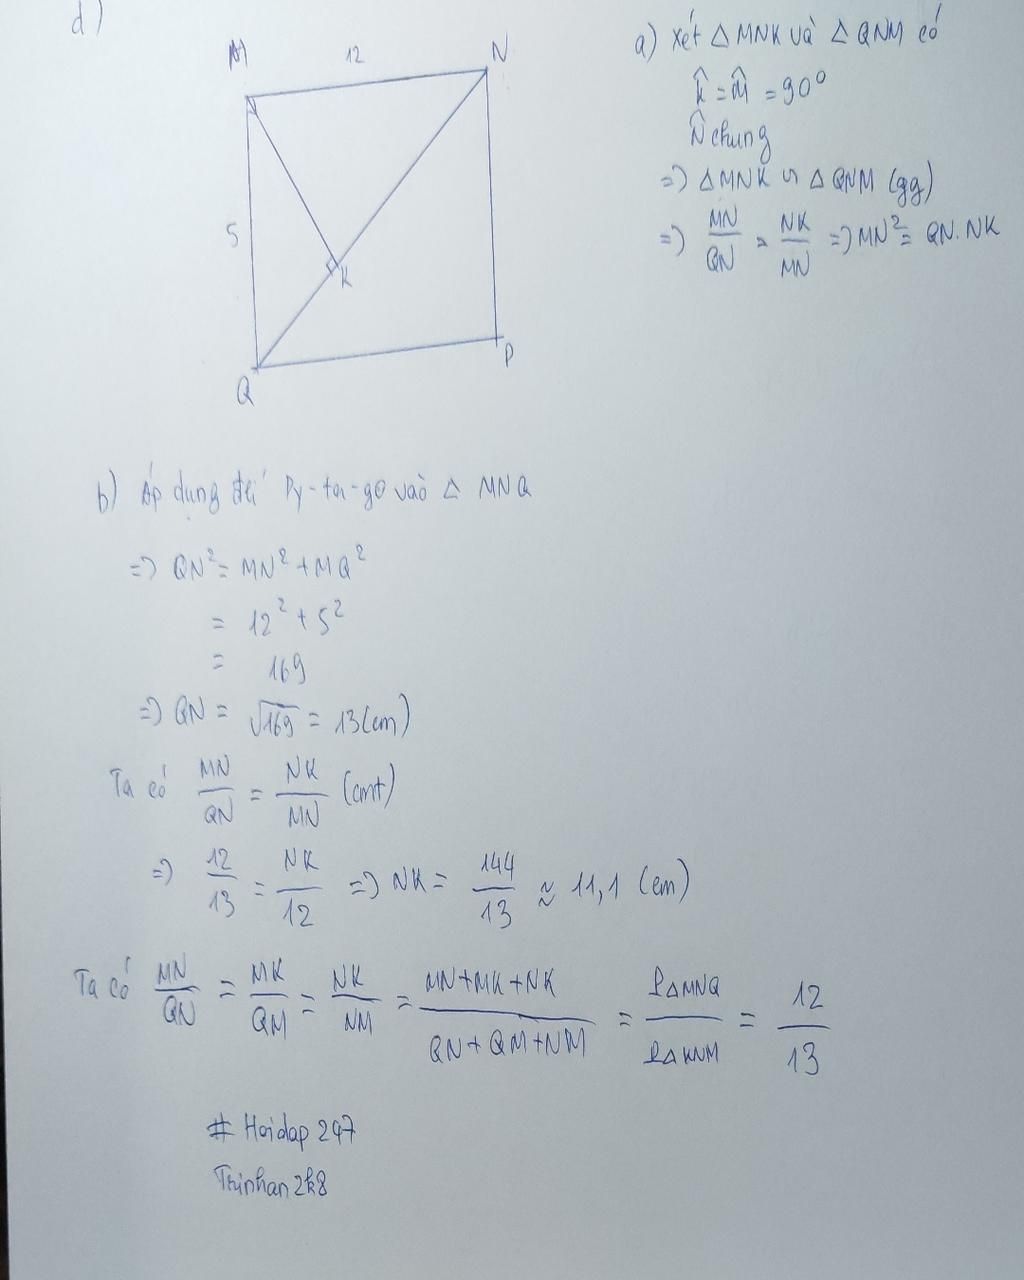 d)
M
12
N
5
K
Q
P
a) Xét △MNK và △QNM có
K̂ = M̂ = 90°
N̂ chung
=> △MNK ∽ △QNM (gg)
=> MN/QN = NK/MN => MN² = QN.NK
b) Áp dụng đlí Py-ta-go vào △ MNQ
=> QN² = MN² + MQ²
= 12² + 5²
= 169
=> QN = √169 = 13 (cm)
Ta có MN/QN = NK/MN (cmt)
=> 12/13 = NK/12 => NK = 144/13 ≈ 11,1 (cm)
Ta có MN/QN = MK/QM = NK/NM = MN+MK+NK/QN+QM+NM = P△MNQ/P△KNM = 12/13
# Hoidap 247
Trinhan2k8